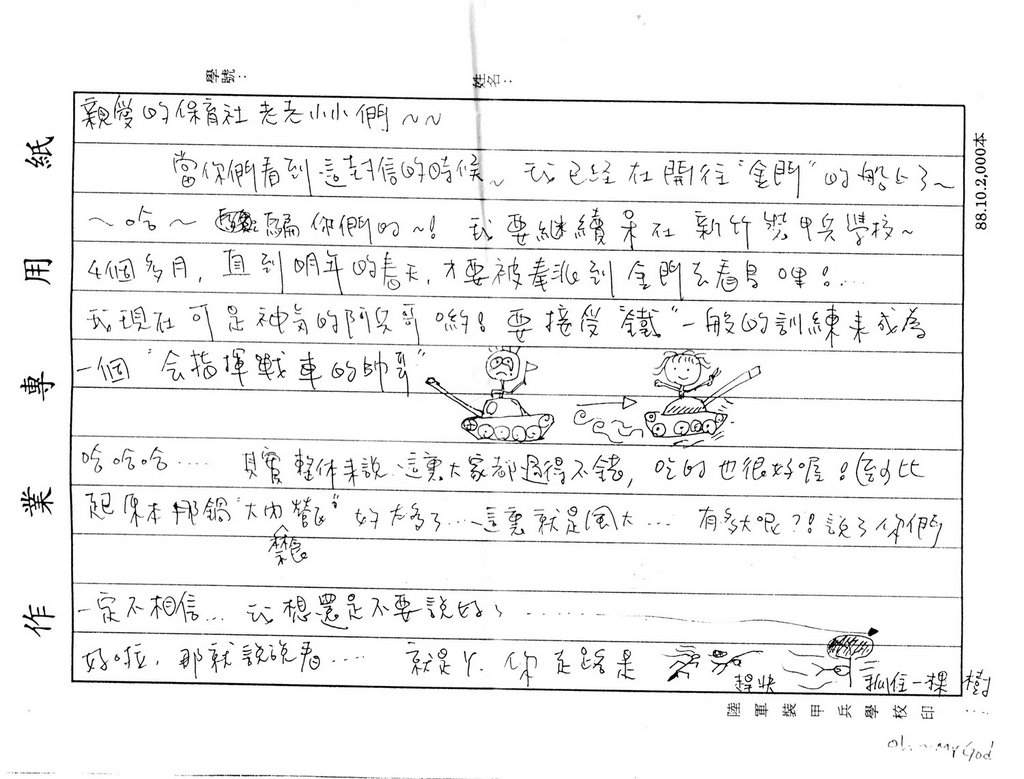 學號：
姓名：
作業專用紙
88.10.2,000本
親愛的保育社老老小小們～～
當你們看到這封信的時候～我已經在開往"金門"的船上了～
～哈～ 騙你們的～! 我要繼續呆在新竹裝甲兵學校～
4個多月，直到明年的春天，才要被奉派到金門去看島哩!...
我現在可是神氣的阿兵哥喲! 要接受"鐵"一般的訓練來成為
一個"会指揮戰車的帥哥"
哈哈哈.... 其實整体來說 這裏大家都過得不錯, 吃的也很好喔!比
起原本那鍋"大內營區"好太多了...這裏就是風大... 有多大呢?! 說了你們
禁
一定不相信... 我想還是不要說好了............
好啦, 那就說說看.... 就是丫. 你走路是
趕快
抓住一棵樹
....
陸軍裝甲兵學校印
Oh~My God